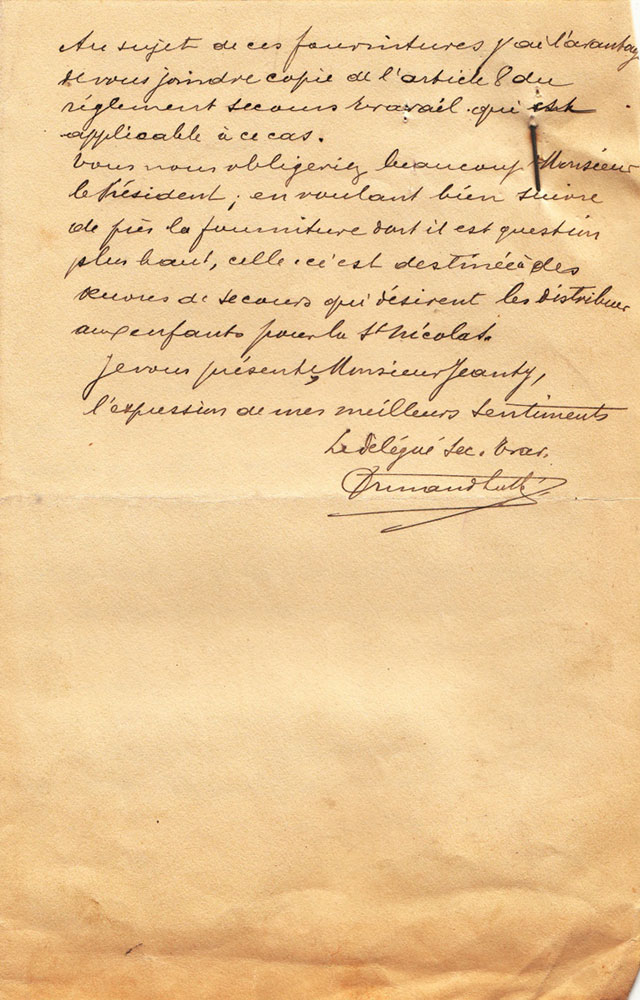 Au sujet de ces fournitures j'ai l'avantage
de vous joindre copie de l'article 8 du
réglement secours travail qui est
applicable à ce cas.
Vous nous obligeriez beaucoup Monsieur
le Président, en voulant bien suivre
de près la fourniture dont il est question
plus haut, celle-ci est destinée à des
œuvres de secours qui désirent les distribuer
aux enfants pour la St Nicolas.
Je vous présente, Monsieur Jeanty,
l'expression de mes meilleurs sentiments
Le délégué Sec. Trav.